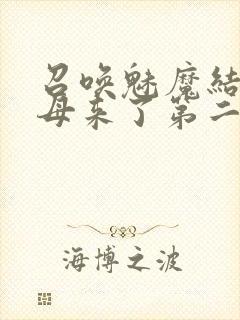 召唤魅魔結
母来了第二
海博之波